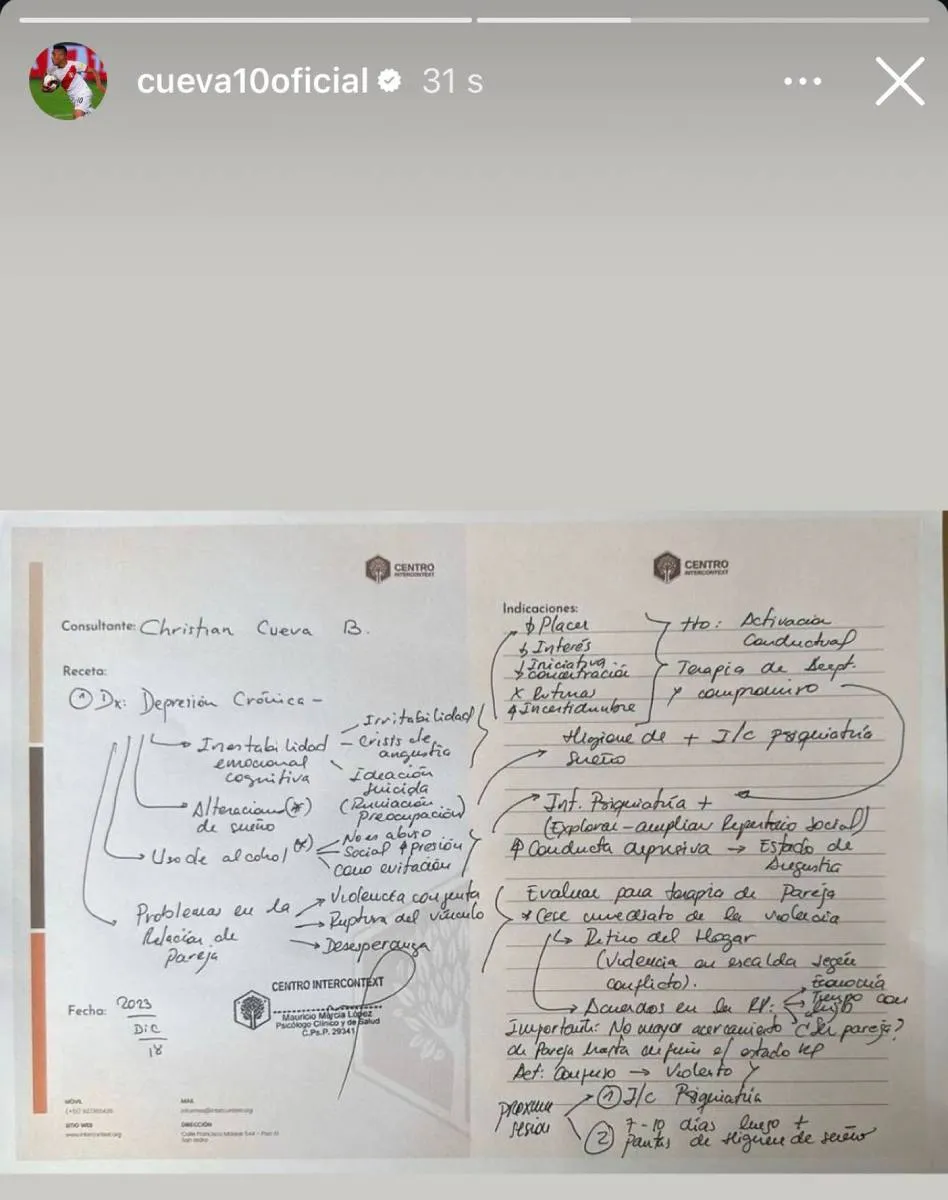 cueva10oficial 31 s
CENTRO
INTERCONTEXT
Consultante: Christian Cueva B.
Receta:
① Dx: Depresión Crónica -
Irritabilidad
Inestabilidad - Crisis de
emocional angustia
cognitiva Ideación
suicida
Alteraciones (*) (Rumiación
de sueño Preocupación)
Uso de alcohol (*) No es abuso
Social ↑ presión
como evitación
Problemas en la → Violencia conjunta
Relación de → Ruptura del vínculo
Pareja → Desesperanza
CENTRO INTERCONTEXT
Mauricio Marcia López
Psicólogo Clínico y de Salud
C.Ps.P. 29341
Fecha: 2023
Dic
18
MÓVIL
MAIL
SITIO WEB
www.intercontext.org
DIRECCIÓN
San Isidro
CENTRO
INTERCONTEXT
Indicaciones:
↓ Placer
↓ Interés
↓ Iniciativa
↓ concentración
X Rutina
↑ Incertidumbre
tto: Activación
Conductual
Terapia de Acept.
y compromiso
Higiene de + I/c psiquiatría
sueño
Int. Psiquiatría +
(Explorar-ampliar Repertorio Social)
↑ Conducta depresiva → Estado de
Angustia
Evaluar para terapia de Pareja
* Cese inmediato de la violencia
↳ Retiro del Hogar
(Violencia en escalda según
conflicto).
→ Acuerdos en la RP: Economía
Tiempo con
hijos
Importante: No mayor acercamiento
de Pareja hasta definir el estado
Act: Confuso → Violento y
próxima ① I/c Psiquiatría
sesión ② 7-10 días luego +
pautas de Higiene de sueño